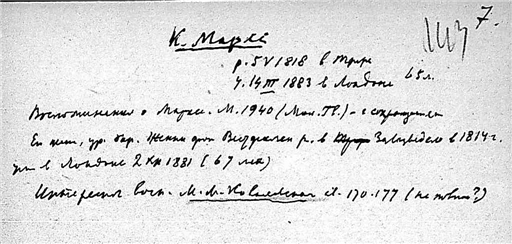 7.
К. Маркс
р. 5 V 1818 в Трире
у. 14 III 1883 в Лондоне 65 л.
Воспоминания о Марксе. М. 1940 (Мол. Гв.) – с сокращ
Ее жен, ур. бар. Женни фон Вестфален р. в Зальцведеле в 1814 г.
ум в Лондоне 2 XII 1881 (67 лет)
Интересное восп. М. М. Ковалевского ст. 170-177 (не полно?)